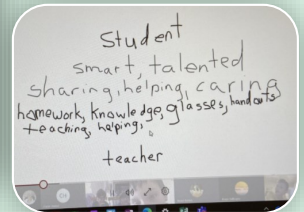 Student
smart, talented
sharing, helping, caring
homework, knowledge, glasses, handouts
teaching, helping,
teacher